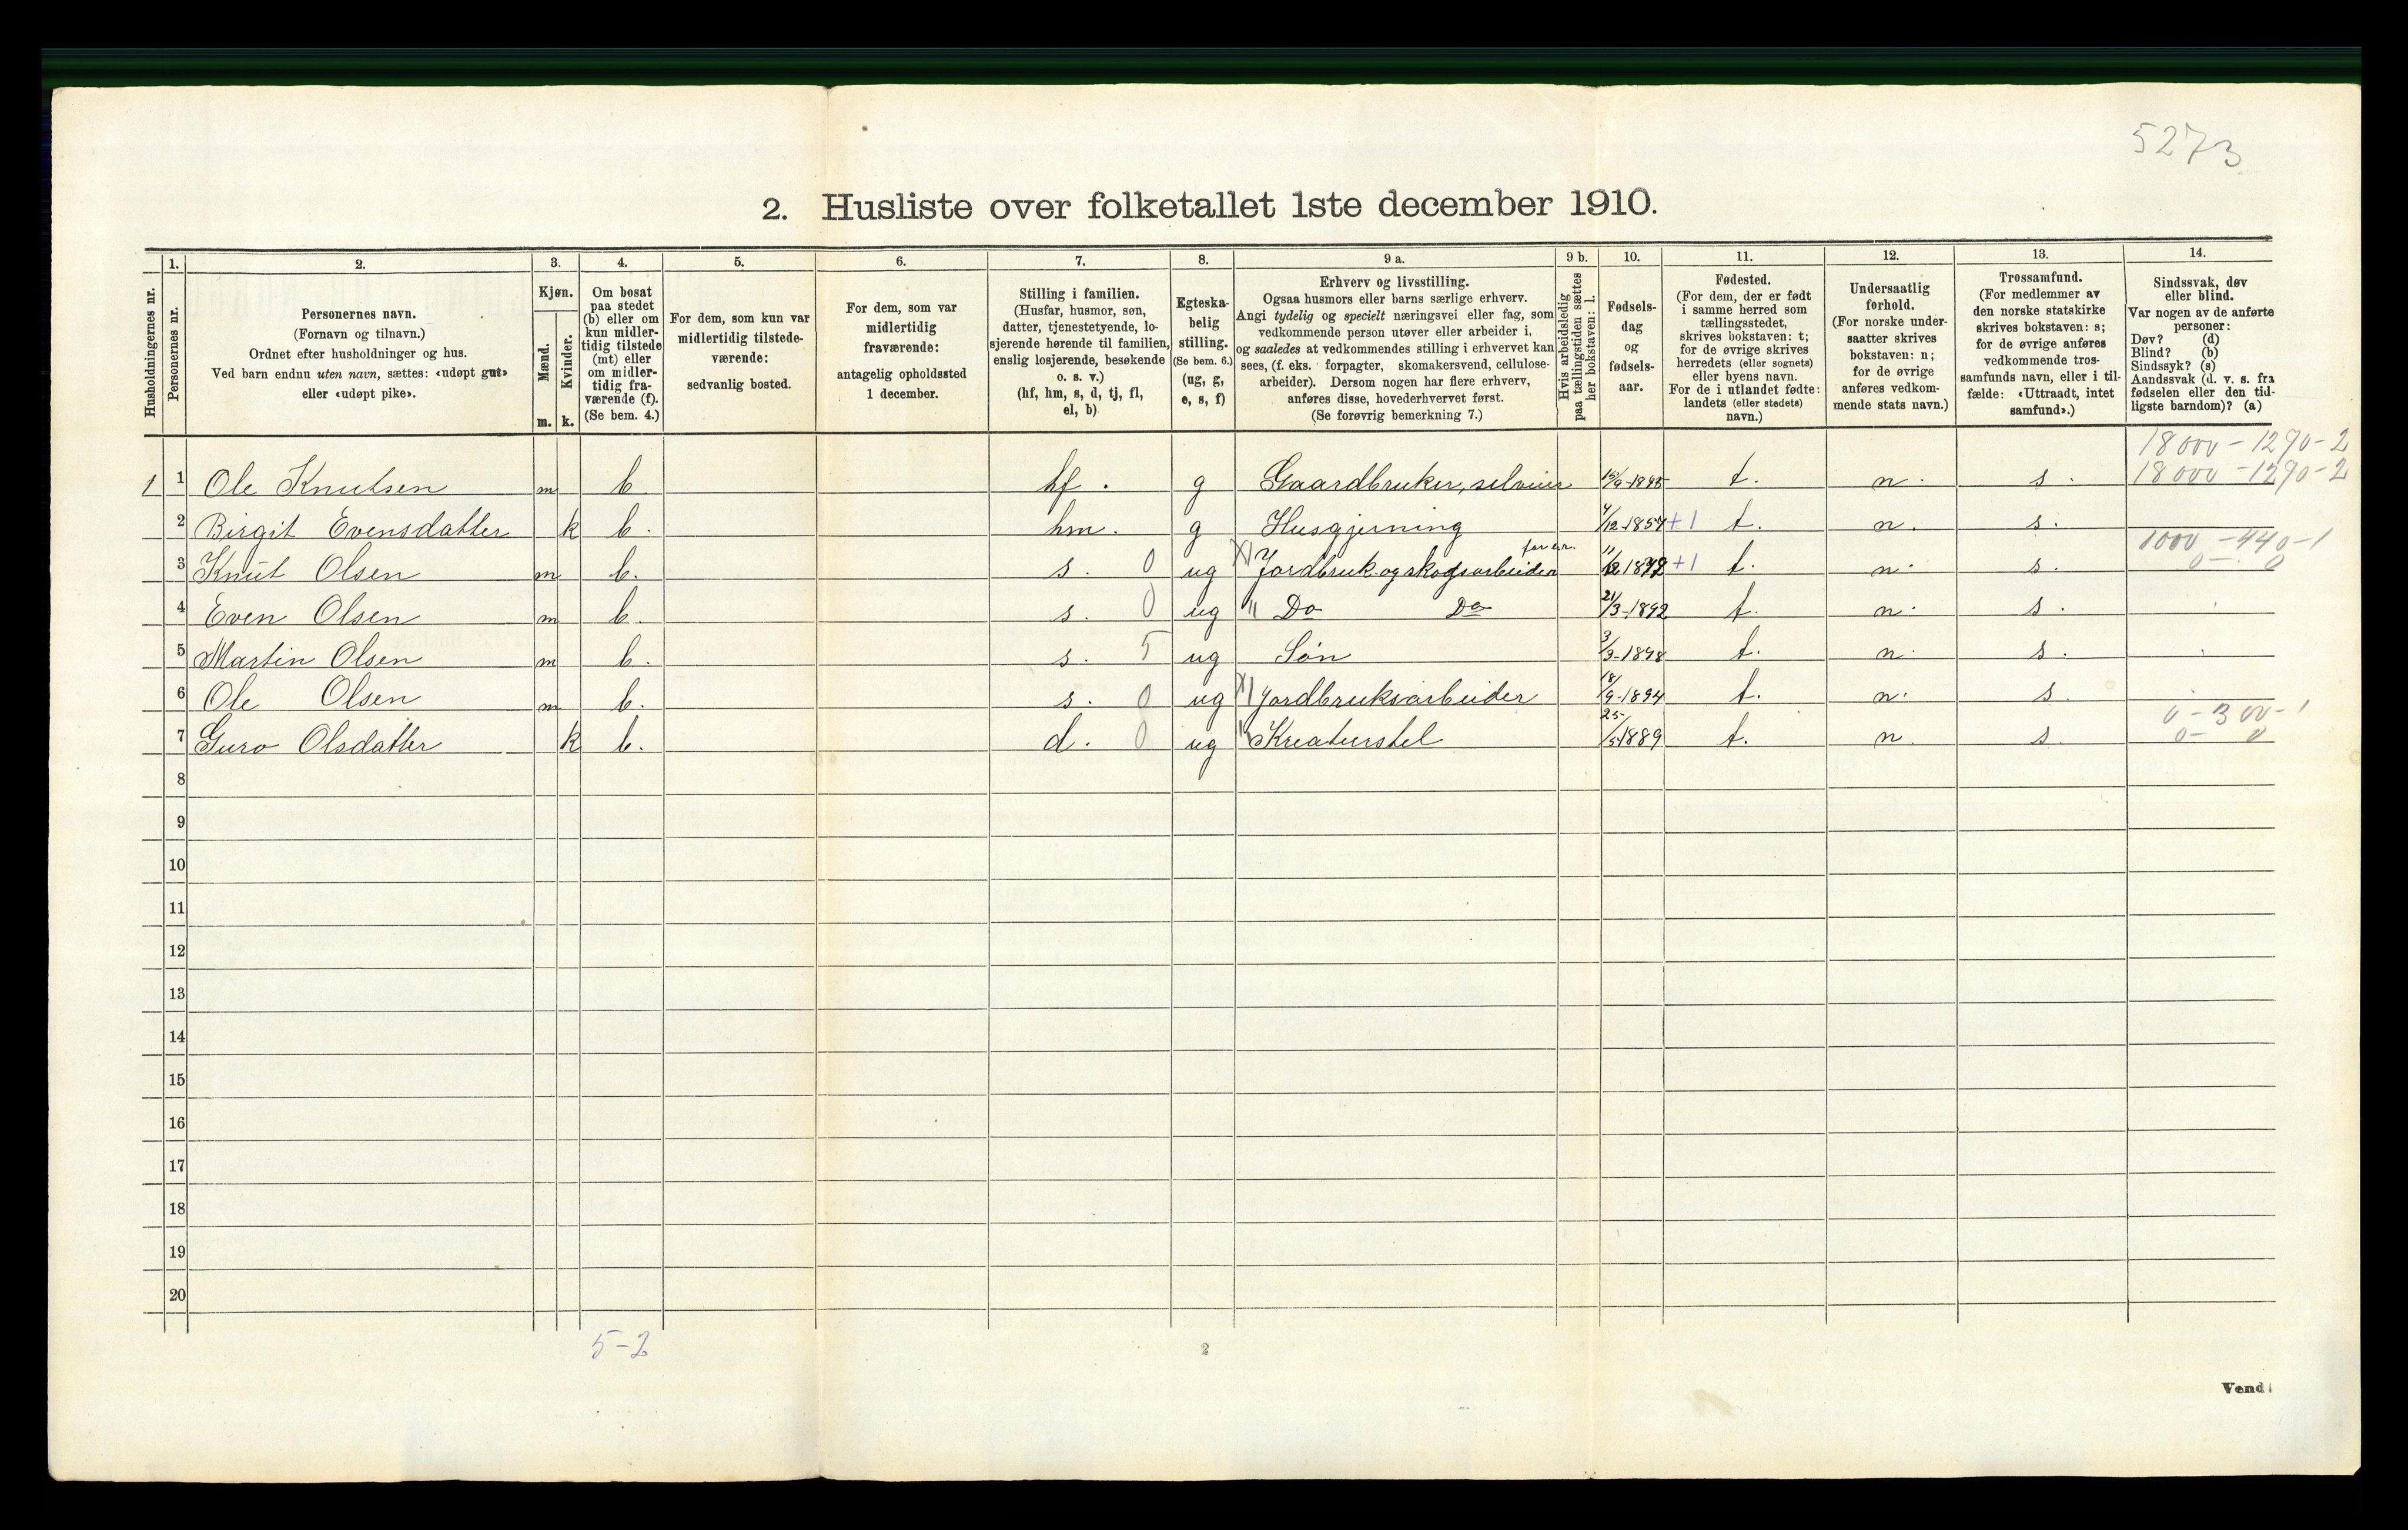 5273
2. Husliste over folketallet 1ste december 1910.
Husholdningernes nr.
1.
Personernes nr.
2.
Personernes navn.
(Fornavn og tilnavn.)
Ordnet efter husholdninger og hus.
Ved barn endnu uten navn, sættes: «udøpt gut»
eller «udøpt pike».
3.
Kjøn.
Mænd.
Kvinder.
m. k.
4.
Om bosat
paa stedet
(b) eller om
kun midler-
tidig tilstede
(mt) eller
om midler-
tidig fra-
værende (f).
(Se bem. 4.)
5.
For dem, som kun var
midlertidig tilstede-
værende:
sedvanlig bosted.
6.
For dem, som var
midlertidig
fraværende:
antagelig opholdssted
1 december.
7.
Stilling i familien.
(Husfar, husmor, søn,
datter, tjenestetyende, lo-
sjerende hørende til familien,
enslig losjerende, besøkende
o. s. v.)
(hf, hm, s, d, tj, fl,
el, b)
8.
Egteska-
belig
stilling.
(Se bem. 6.)
(ug, g,
e, s, f)
9 a.
Erhverv og livsstilling.
Ogsaa husmors eller barns særlige erhverv.
Angi tydelig og specielt næringsvei eller fag, som
vedkommende person utøver eller arbeider i,
og saaledes at vedkommendes stilling i erhvervet kan
sees, (f. eks. forpagter, skomakersvend, cellulose-
arbeider). Dersom nogen har flere erhverv,
anføres disse, hovederhvervet først.
(Se forøvrig bemerkning 7.)
9 b.
Hvis arbeidsledig
paa tællingstiden sættes
her bokstaven: l.
10.
Fødsels-
dag
og
fødsels-
aar.
11.
Fødested.
(For dem, der er født
i samme herred som
tællingsstedet,
skrives bokstaven: t;
for de øvrige skrives
herredets (eller sognets)
eller byens navn.
For de i utlandet fødte:
landets (eller stedets)
navn.)
12.
Undersaatlig
forhold.
(For norske under-
saatter skrives
bokstaven: n;
for de øvrige
anføres vedkom-
mende stats navn.)
13.
Trossamfund.
(For medlemmer av
den norske statskirke
skrives bokstaven: s;
for de øvrige anføres
vedkommende tros-
samfunds navn, eller i til-
fælde: «Uttraadt, intet
samfund».)
14.
Sindssvak, døv
eller blind.
Var nogen av de anførte
personer:
Døv? (d)
Blind? (b)
Sindssyk? (s)
Aandssvak (d. v. s. fra
fødselen eller den tid-
ligste barndom)? (a)
18000 - 1290 - 2
1 1 Ole Knutsen m b hf. g Gaardbruker, selveier t. n. s. 18000 - 1290 - 2
2 Birgit Evensdatter k b. hm. g Husgjerning 4/12-1857 +1 t. n. s.
1000 - 440 - 1
3 Knut Olsen m b. s. 0 ug X Jordbruk- og skogsarbeider +1 t. n. s. 0 - 0
4 Even Olsen m b. s. 0 ug " Do Do 21/3-1892 t. n. s.
5 Martin Olsen m b. s. 5 ug Søn 3/3-1898 t. n. s.
6 Ole Olsen m b. s. 0 ug X Jordbruksarbeider 18/9-1894 t. n. s.
0 - 300 - 1
7 Guro Olsdatter k b. d. 0 ug " Kreaturstel 25/5-1889 t. n. s. 0 - 0
8
9
10
11
12
13
14
15
16
17
18
19
20
5-2
2
Vend!